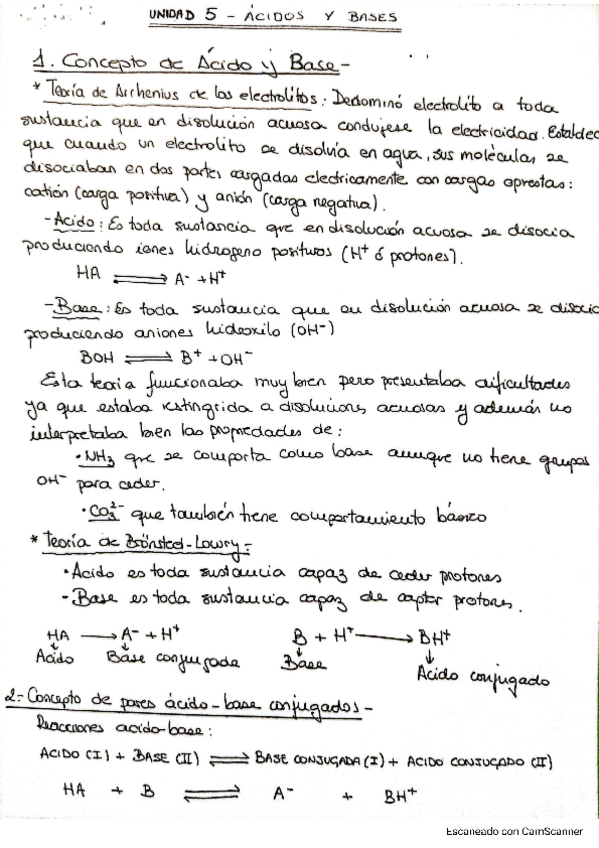 UNIDAD 5 - ÁCIDOS Y BASES
1. Concepto de Ácido y Base-
* Teoría de Arrhenius de los electrolitos: Denominó electrolito a toda
sustancia que en disolución acuosa condujese la electricidad. Estableció
que cuando un electrolito se disolvía en agua, sus moléculas se
disociaban en dos partes cargadas electricamente con cargas opuestas:
catión (carga positiva) y anión (carga negativa).
- Ácido: Es toda sustancia que en disolución acuosa se disocia
produciendo iones hidrogeno positivos (H⁺ ó protones).
HA ⇌ A⁻ + H⁺
- Base: Es toda sustancia que en disolución acuosa se disocia
produciendo aniones hidroxilo (OH⁻)
BOH ⇌ B⁺ + OH⁻
Esta teoría funcionaba muy bien pero presentaba dificultades
ya que estaba restingrida a disoluciones acuosas y además no
interpretaba bien las propiedades de:
· NH₃ que se comporta como base aunque no tiene grupos
OH⁻ para ceder.
· CO₃²⁻ que también tiene comportamiento básico
* Teoría de Brönsted-Lowry:
· Ácido es toda sustancia capaz de ceder protones
- Base es toda sustancia capaz de captar protones.
HA → A⁻ + H⁺ B + H⁺ → BH⁺
Ácido Base conjugada Base Ácido conjugado
2.- Concepto de pares ácido-base conjugados-
Reacciones acido-base:
ACIDO (I) + BASE (II) ⇌ BASE CONJUGADA (I) + ACIDO CONJUGADO (II)
HA + B ⇌ A⁻ + BH⁺
Escaneado con CamScanner